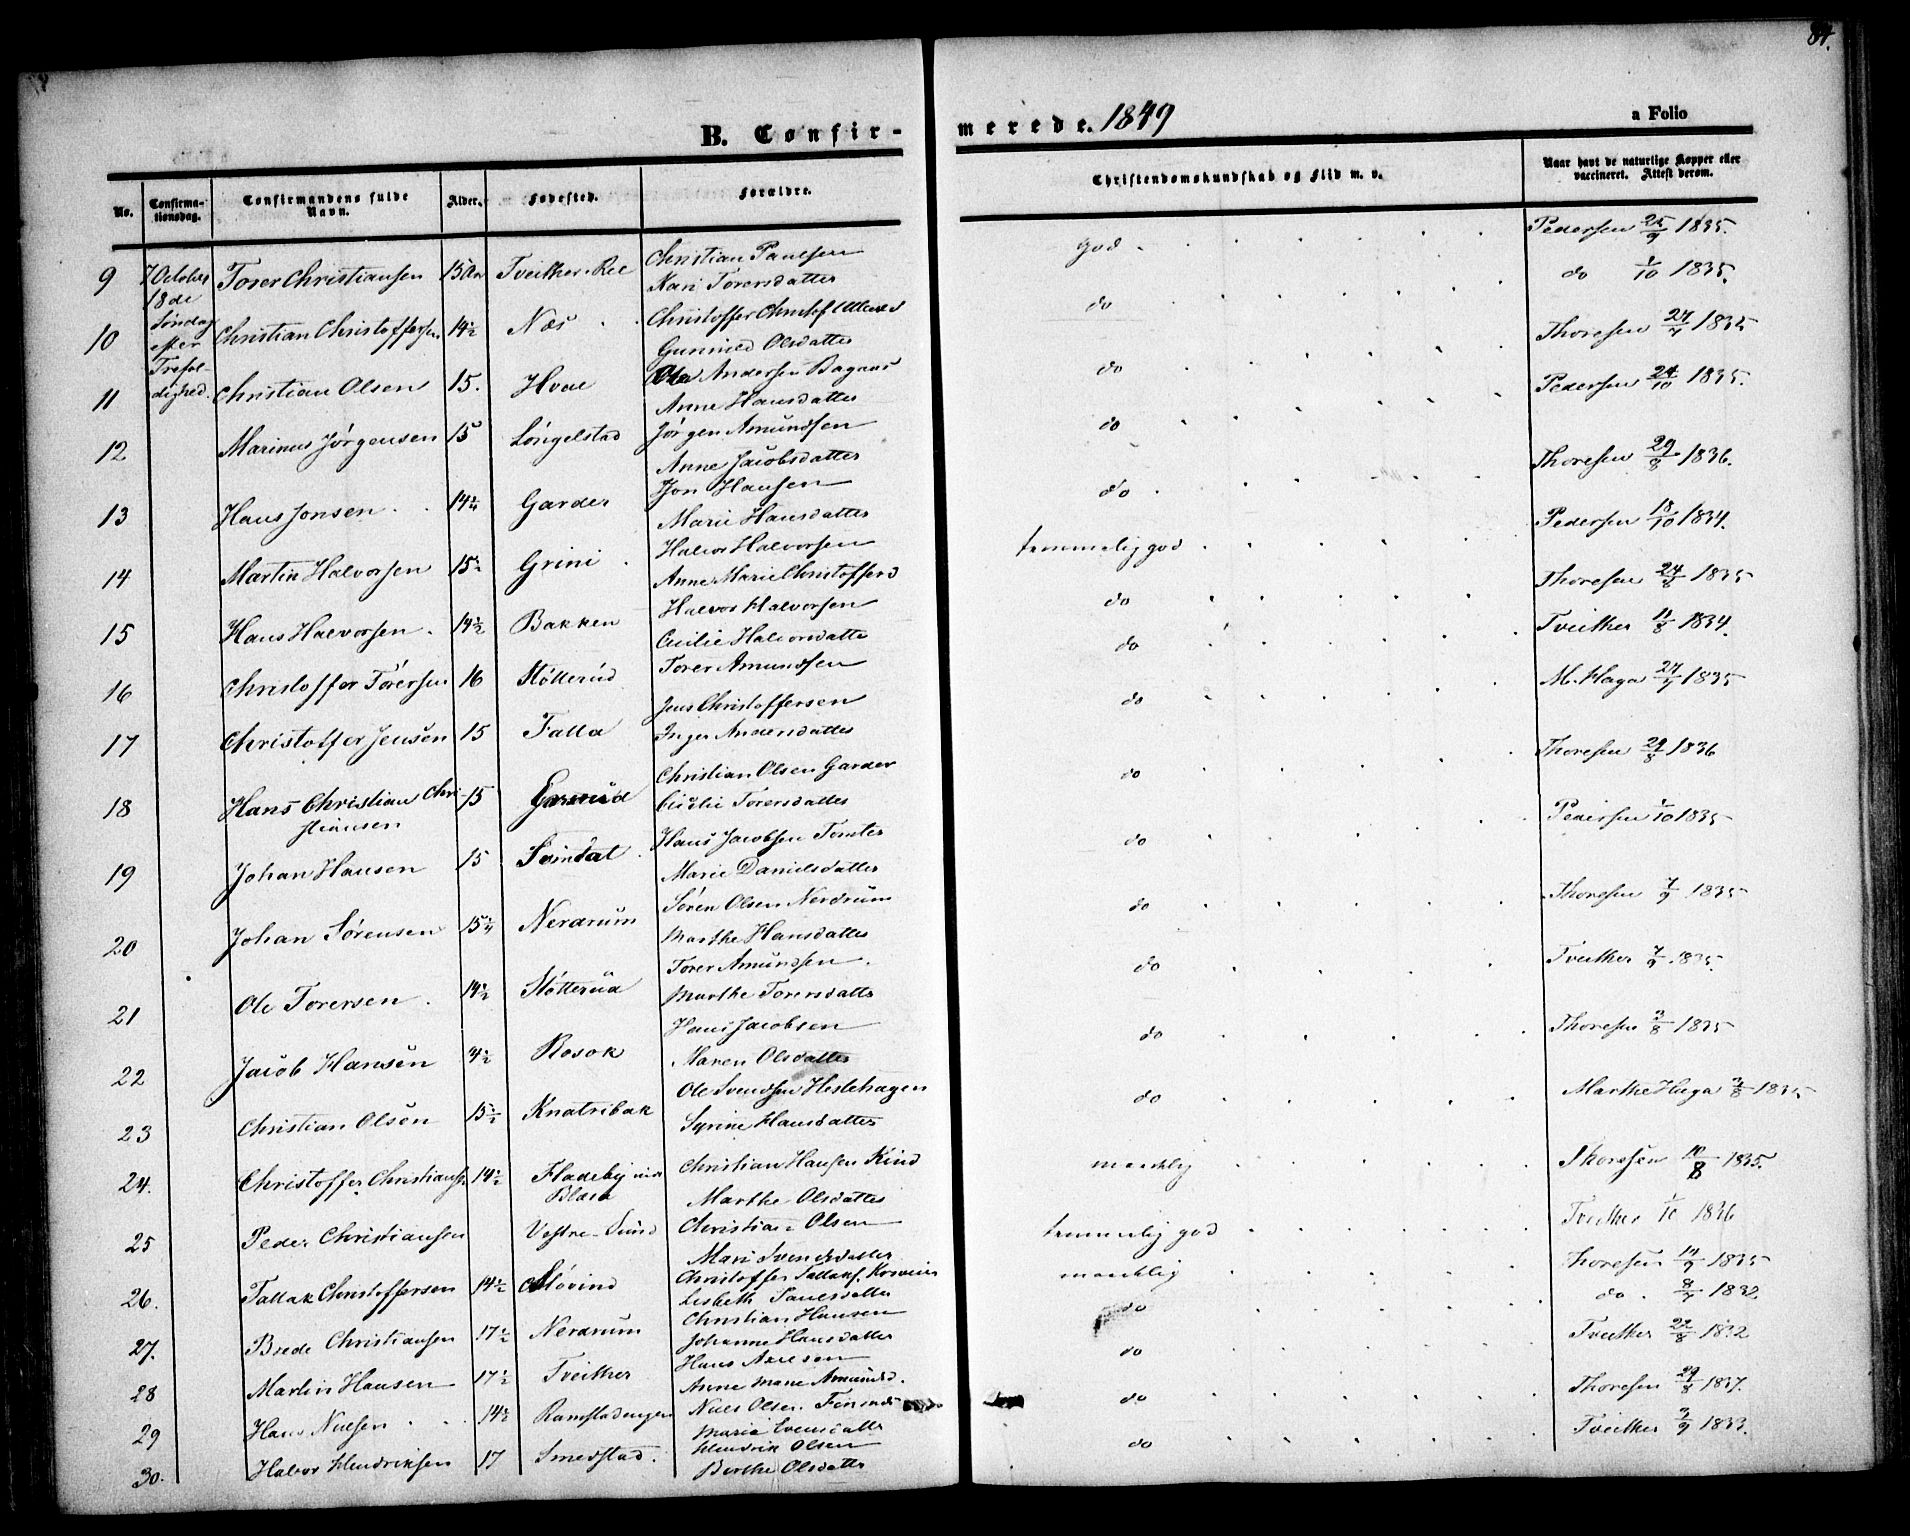 84.
B. Confirmerede. 1849
a Folio
No. Confirmationsdag. Confirmandens fulde Navn. Alder. Fødested. Forældre. Christendomskundskab og Flid m. v. Naar havt de naturlige Kopper eller vaccineret. Attest derom.
7 October 18de Søndag efter Trefoldighed.
9 Torer Christiansen 15 Aar Tveither Christian Paulsen god Pedersen 25/9 1835.
Kari Torersdatter
10 Christian Christoffersen 14 1/2 Næs Christoffer do do 1/10 1835.
Gunnild Olsdatter
11 Christian Olsen 15. Hval Ole Andersen do Thoresen 1835
Anne Hansdatter
12 Marinus Jørgensen 15 Løngelstad Jørgen Amundsen do Pedersen 24/10 1835.
Anne Jacobsdatter
13 Hans Jonsen 14 1/4 Garder Jon Hansen do Thoresen 29/8 1836.
Marie Hansdatter
14 Martin Halvorsen 15 1/2 Grini Halvor Halvorsen temmelig god Pedersen 18/10 1834.
Anne Marie Christoffersd
15 Hans Halvorsen 14 1/2 Bakken Halvor Halvorsen do Thoresen 24/8 1835
Cicilie Halvorsdatter
16 Christoffer Torersen 16 Støtterud Torer Amundsen do Tveither 11/8 1834.
17 Christoffer Jensen 15 Falla Jens Christoffersen do M. Haga 1835
Inger Andersdatter
18 Hans Christian Christiansen 15 Christian Olsen Garder do Thoresen 29/8 1836
Cicilie Torersdatter
19 Johan Hansen 15 Svindal Hans Jacobsen Tomter do Pedersen 1/10 1835
Marie Danielsdatter
20 Johan Sørensen 15 1/4 Nerdrum Søren Olsen Nerdrum do Thoresen 7/9 1835
Marthe Hansdatter
21 Ole Torersen 14 1/2 Støtterud Torer Amundsen do Tveither 7/9 1835.
Marthe Torersdatter
22 Jacob Hansen Rosok Hans Jacobsen do Thoresen 3/8 1835
Maren Olsdatter
23 Christian Olsen 15 1/2 Knatribak Ole Svendsen Heslehagen do Marthe Haga 3/8 1835
Syrine Hansdatter
24. Christoffer Christiansen 14 1/2 Fladeby Christian Hansen Kind maadelig Thoresen 10/8 1835.
Marthe Olsdatter
25 Peder Christiansen Vestre-Sund Christian Olsen temmelig god Tveither 1/10 1836
Mari Svendsdatter
26. Tallak Christoffersen 14 1/2 Støvind Christoffer Tallaksen maadelig Thoresen 14/9 1835
Lisbeth Paulsdatter
27. Brede Christiansen 17 1/2 Nerdrum Christian Hansen do do 1832
Johanne Hansdatter
28 Martin Hansen 17 1/2 Tveither Hans do Tveither 22/8 1832
Anne Marie Amundsd.
29 Hans Nielsen 14 1/2 Ramstadengen Niels Olsen do Thoresen 29/8 1837.
Maria Evensdatter
30. Halvor Hendriksen 17 Smedstad. Hendrik Olsen do Tveither 3/9 1833.
Berthe Olsdatter